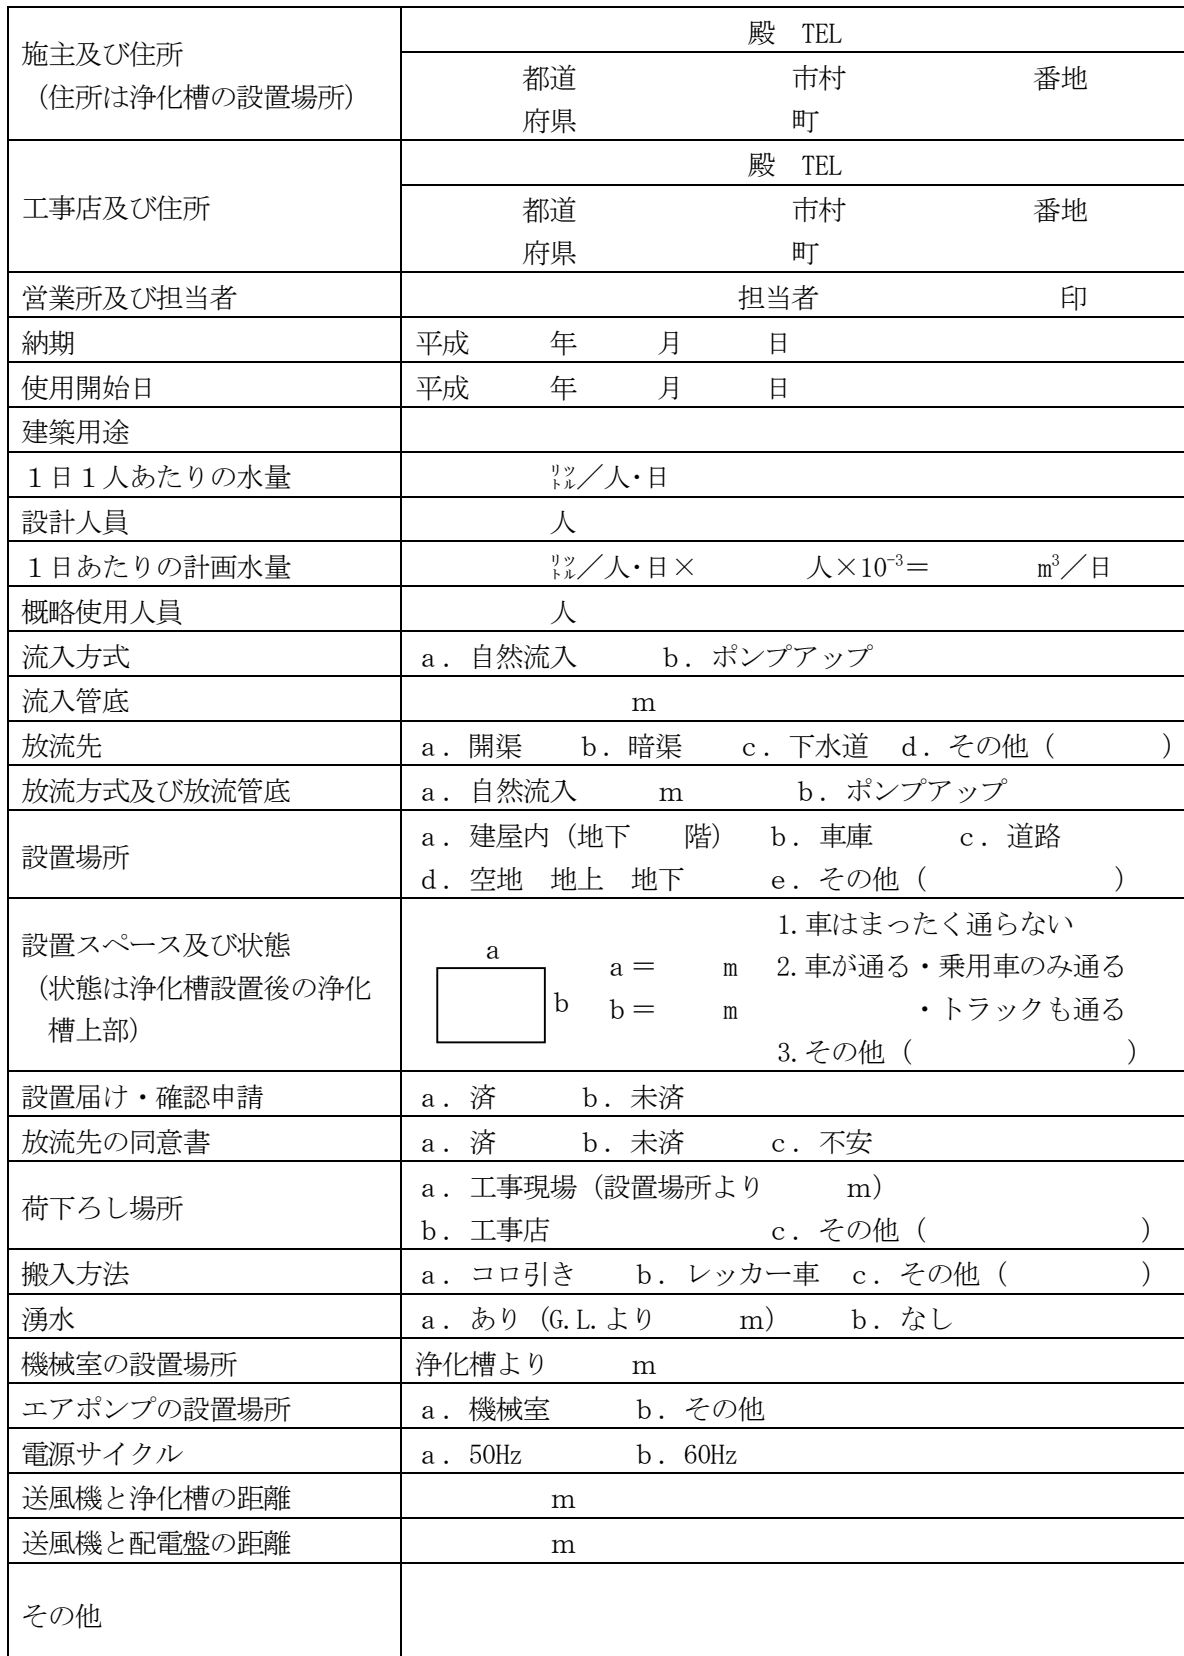 施主及び住所
（住所は浄化槽の設置場所）
殿　TEL
都道　市村　番地
府県　町
工事店及び住所
殿　TEL
都道　市村　番地
府県　町
営業所及び担当者　担当者　印
納期　平成　年　月　日
使用開始日　平成　年　月　日
建築用途
１日１人あたりの水量　㍑／人・日
設計人員　人
１日あたりの計画水量　㍑／人・日×　人×10⁻³＝　m³／日
概略使用人員　人
流入方式　ａ．自然流入　ｂ．ポンプアップ
流入管底　ｍ
放流先　ａ．開渠　ｂ．暗渠　ｃ．下水道　ｄ．その他（　）
放流方式及び放流管底　ａ．自然流入　ｍ　ｂ．ポンプアップ
設置場所
ａ．建屋内（地下　階）　ｂ．車庫　ｃ．道路
ｄ．空地　地上　地下　ｅ．その他（　）
設置スペース及び状態
（状態は浄化槽設置後の浄化
槽上部）
ａ
ｂ
ａ＝　ｍ
ｂ＝　ｍ
1.車はまったく通らない
2.車が通る・乗用車のみ通る
・トラックも通る
3.その他（　）
設置届け・確認申請　ａ．済　ｂ．未済
放流先の同意書　ａ．済　ｂ．未済　ｃ．不安
荷下ろし場所
ａ．工事現場（設置場所より　ｍ）
ｂ．工事店　ｃ．その他（　）
搬入方法　ａ．コロ引き　ｂ．レッカー車　ｃ．その他（　）
湧水　ａ．あり（G.L.より　ｍ）　ｂ．なし
機械室の設置場所　浄化槽より　ｍ
エアポンプの設置場所　ａ．機械室　ｂ．その他
電源サイクル　ａ．50Hz　ｂ．60Hz
送風機と浄化槽の距離　ｍ
送風機と配電盤の距離　ｍ
その他